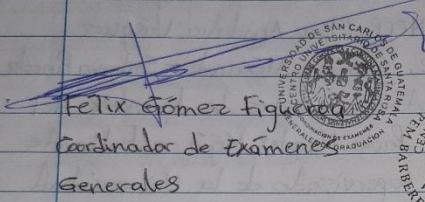 Felix Gómez Figueroa
Coordinador de Exámenes
Generales
UNIVERSIDAD DE SAN CARLOS DE GUATEMALA
CENTRO UNIVERSITARIO DE SANTA ROSA
COORDINACION DE EXAMENES
GENERALES DE GRADUACION